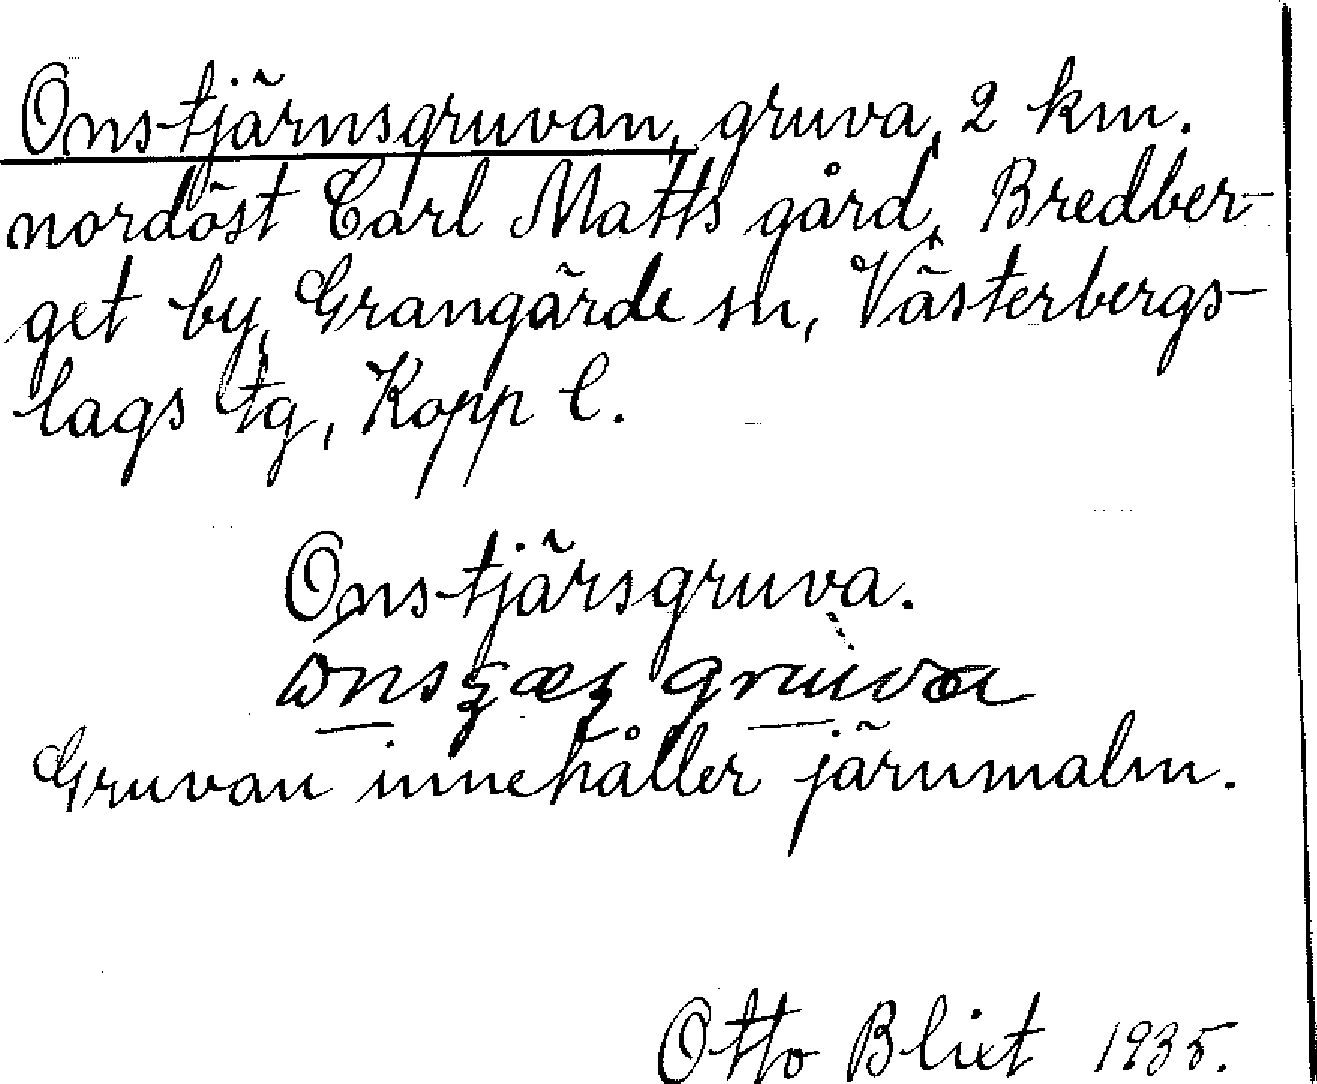 Onstjärnsgruvan, gruva, 2 km.
nordöst Carl Matts gård, Bredber-
get by, Grangärde sn, Västerbergs-
lags tg, Kopp l.
Onstjärsgruva.
Gruvan innehåller järnmalm.
Otto Blixt 1935.